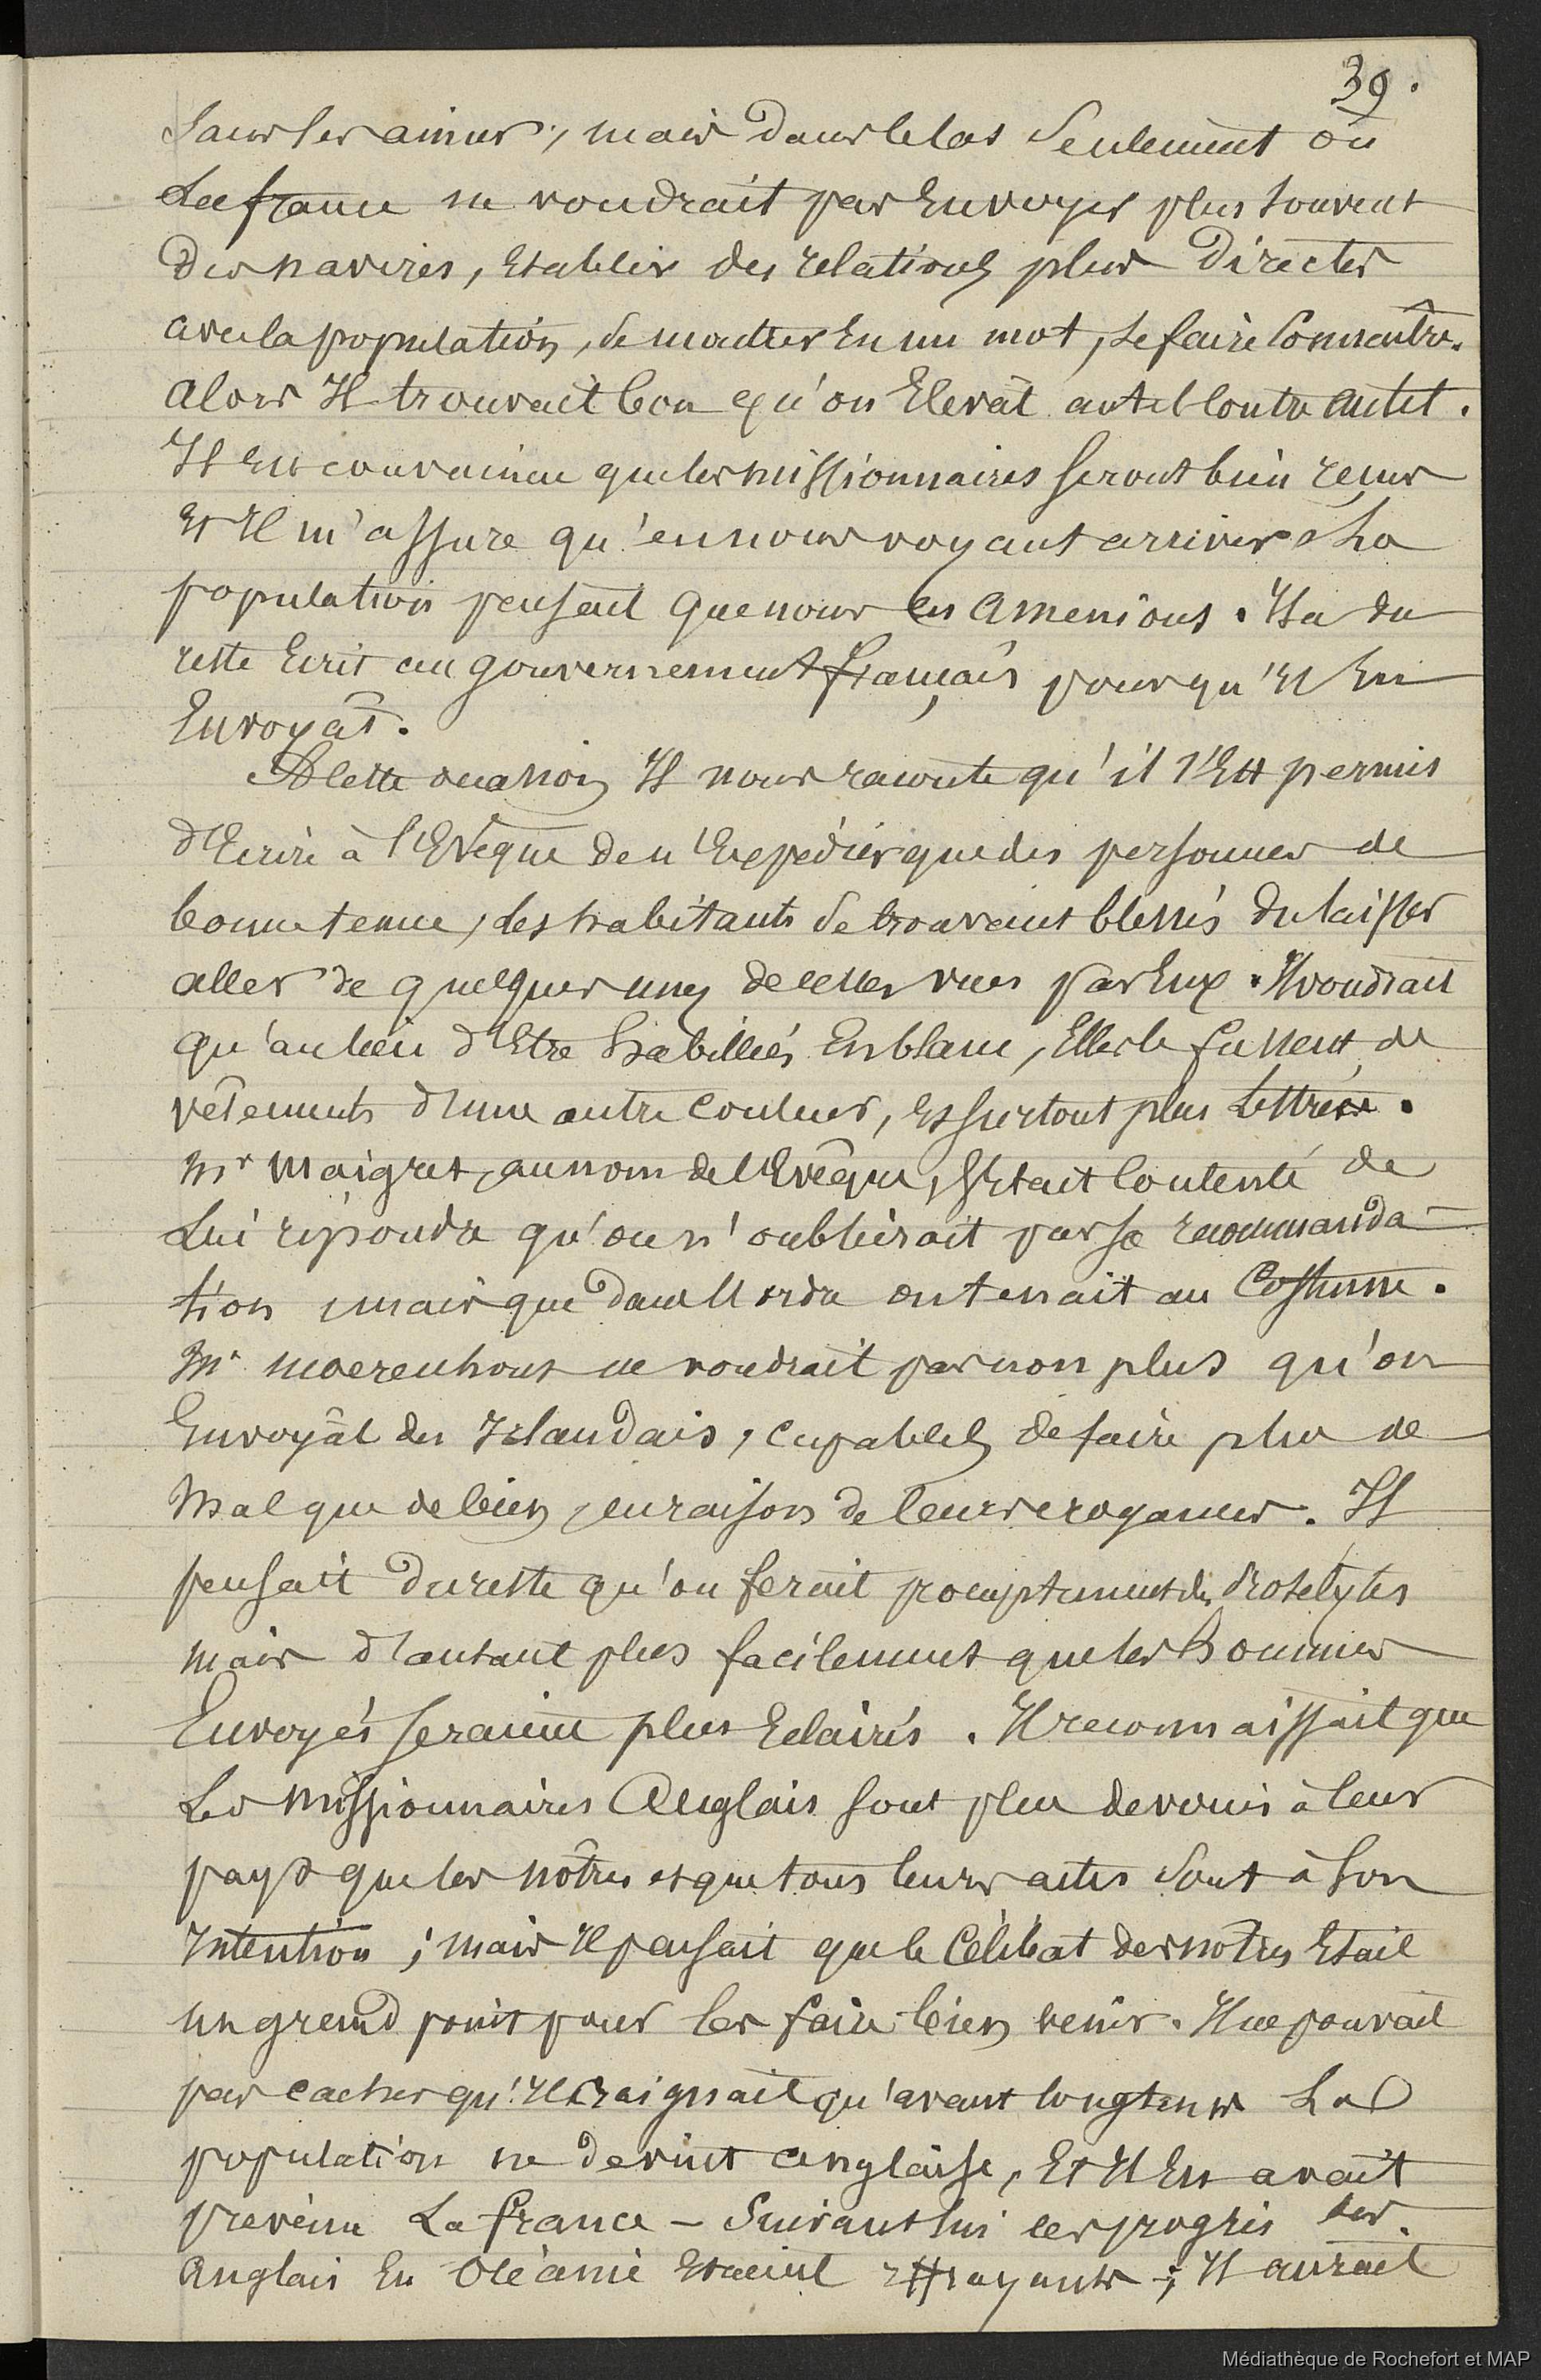 39.
sans les aimer, mais dans le cas seulement où
La france ne voudrait pas Envoyer plus souvent
des navires, Etablir des relations plus directes
avec la population, se montrer En un mot, se faire Connaître.
alors Il trouvait bon qu'on Elevât autel contre autel.
Il Est convaincu que les missionnaires seront bien reçus
Et Il m'assure qu'en nous voyant arriver La
population pensait que nous en amenions. Il a du
reste Ecrit au gouvernement français pour qu'Il En
Envoyât.
A cette occasion Il nous raconte qu'il s'Est permis
d'Ecrire à l'Evêque de n'Expédier que des personnes de
bonne tenue, les habitants se trouvant blessés du laisser
aller de quelques unes de celles vues par Eux. Il voudrait
qu'au lieu d'Etre habillés En blanc, Elles le fussent de
vêtements d'une autre couleur, et surtout plus lettrés.
Mr Maigret, au nom de l'Evêque, s'Etait contenté de
Lui répondre qu'on n'oublierait pas sa recommanda-
tion mais que dans l'ordre on tenait au Costume.
Mr moerenhout ne voudrait pas non plus qu'on
Envoyât des Irlandais, capables de faire plus de
mal que de bien, en raison de leurs croyances. Il
pensait du reste qu'on ferait promptement des Proselytes
mais d'autant plus facilement que les hommes
Envoyés seraient plus Eclairés. Il reconnaissait que
Les missionnaires Anglais sont plus devoués à leur
pays que les nôtres et que tous leurs actes sont à son
Intention; mais Il pensait que le Célibat des nôtres Etait
un grand point pour les faire bien venir. Il ne pouvait
pas cacher qu'Il craignait qu'avant longtems La
population ne devint anglaise, Et Il En avait
prévenu La france – Suivant lui les progrès des
Anglais En Océanie Etaient Effrayants; Il aurait
Médiathèque de Rochefort et MAP